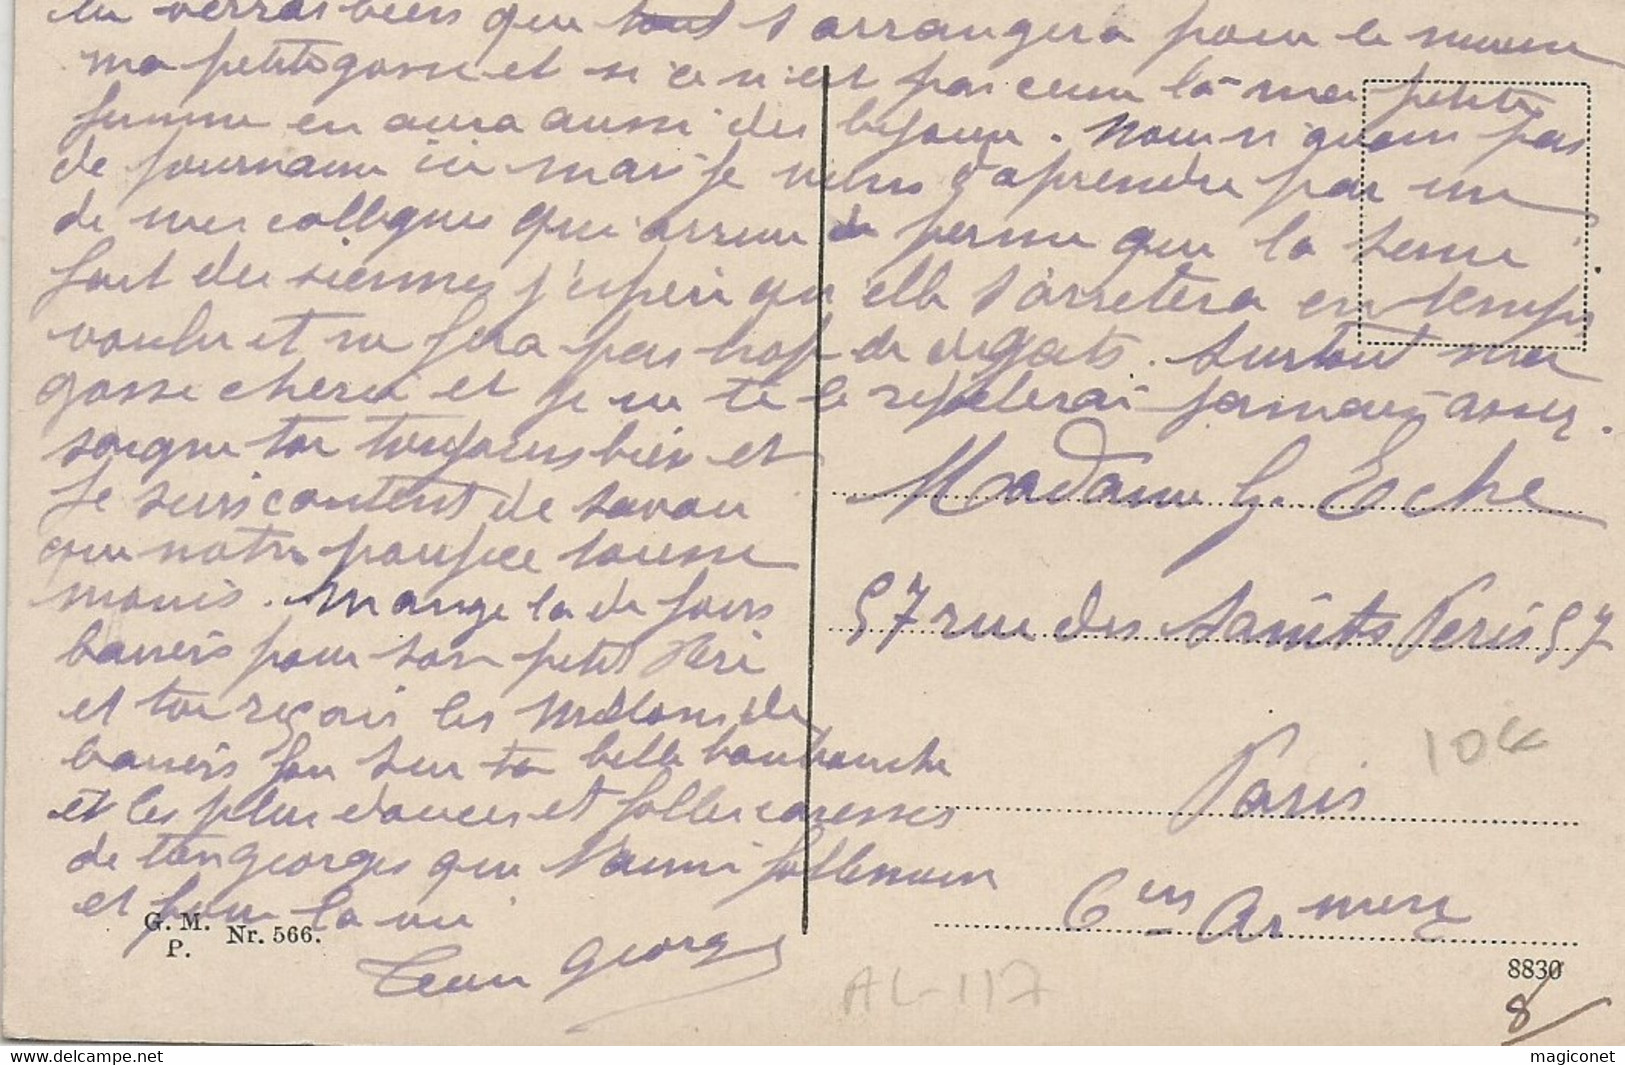 tu verras bien que tout s'arrangera pour le mieux
ma petite gosse et si ce n'est pas ceux là ma petite
femme en aura aussi des bijoux. Nous n'avons pas
de journaux ici mais je viens d'aprendre par un
de mes collegues qui arrive de perme que la Seine
fait des siennes j'espere qu'elle s'arretera en temps
voulu et ne fera pas trop de degats. Surtout ma
gosse cherie et je ne te le repeterai jamais assez.
soigne toi toujours bien et
Je suis content de savoir
que notre poupée tousse
moins. Mange la de gros
baisers pour son petit
et toi reçois les millions de
baisers fou sur ta belle
et les plus douces et folles caresses
de ton georges qui t'aime follement
et pour la vie
Ton Georges
Madame G. Eche
57 rue des Saints Peris 57
Paris
G. M.
P.
Nr. 566.
8830
8
10€
AL-117
www.delcampe.net
magiconet